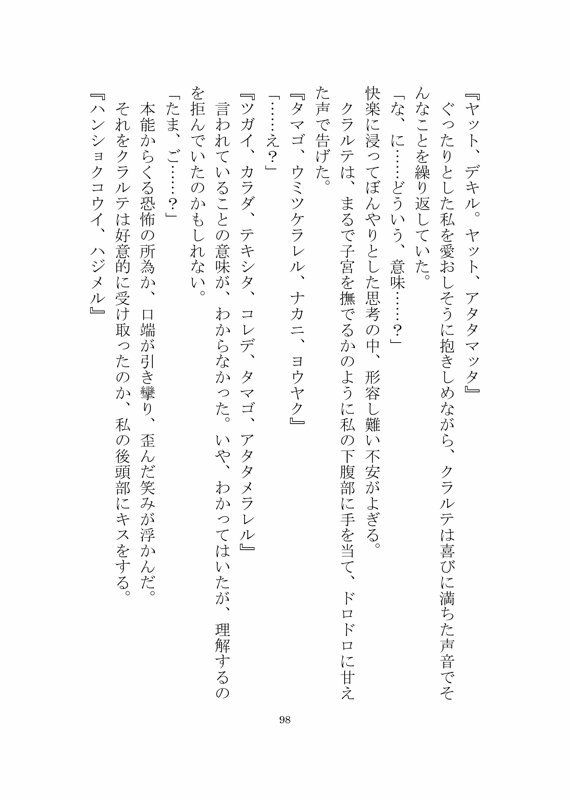 『ヤット、デキル。ヤット、アタタマッタ』
ぐったりとした私を愛おしそうに抱きしめながら、クラルテは喜びに満ちた声音でそ
んなことを繰り返していた。
「な、に……どういう、意味……?」
快楽に浸ってぼんやりとした思考の中、形容し難い不安がよぎる。
クラルテは、まるで子宮を撫でるかのように私の下腹部に手を当て、ドロドロに甘え
た声で告げた。
『タマゴ、ウミツケラレル、ナカニ、ヨウヤク』
「……え?」
『ツガイ、カラダ、テキシタ、コレデ、タマゴ、アタタメラレル』
言われていることの意味が、わからなかった。いや、わかってはいたが、理解するの
を拒んでいたのかもしれない。
「たま、ご……?」
本能からくる恐怖の所為か、口端が引き攣り、歪んだ笑みが浮かんだ。
それをクラルテは好意的に受け取ったのか、私の後頭部にキスをする。
『ハンショクコウイ、ハジメル』
98